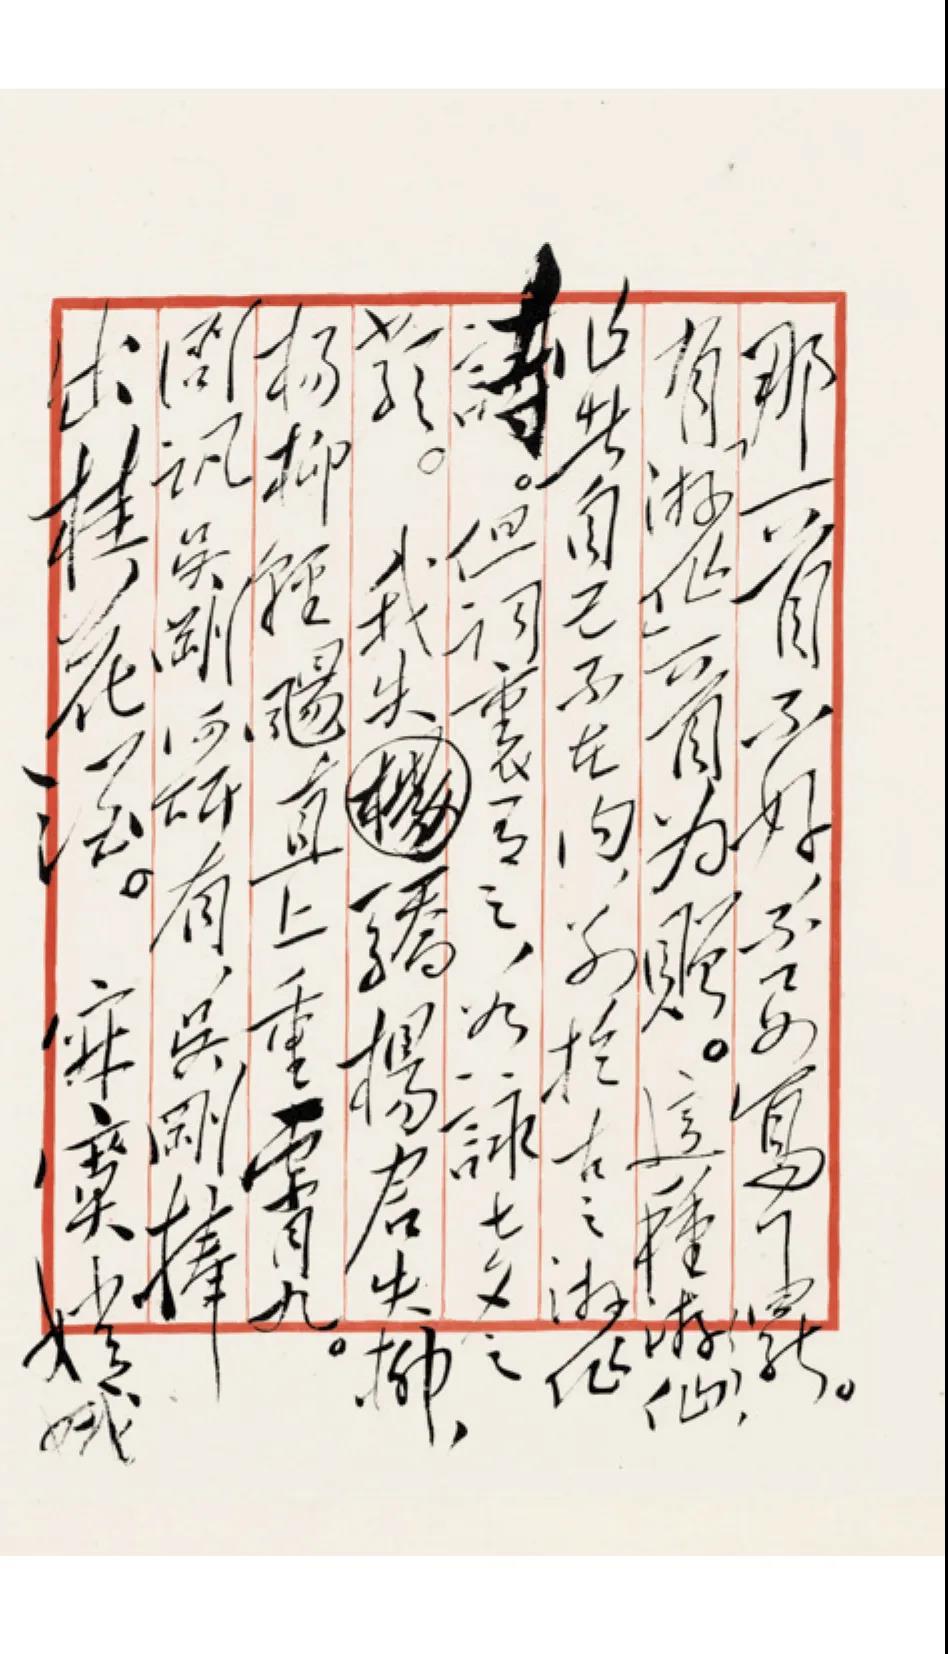 那一首不好，不要寫了罷。
有「游仙」一首为贈。這種游仙，
作者自己不在内，别於古之游仙
詩。但詞裏有之，如詠七夕之
類。我失驕楊君失柳，
楊柳輕颺直上重霄九。
問訊吴剛何所有，吴剛捧
出桂花酒。寂寞嫦娥